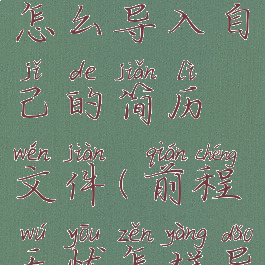 怎么导入自
jǐ de jiǎn lì
己的简历
wén jiàn qián chéng
文件(前程
wú yōu zěn yàng dǎo
无忧怎样导